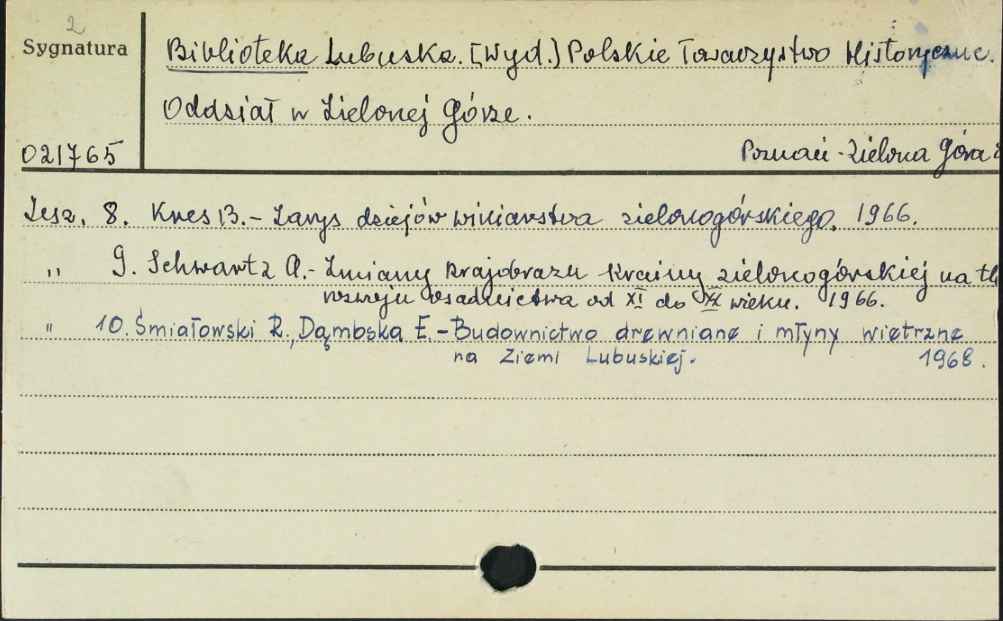 2
Sygnatura
Biblioteka Lubuska. [Wyd.] Polskie Towarzystwo Historyczne.
Oddział w Zielonej Górze.
021765
Poznań - Zielona Góra
Zesz. 8. Kres B. - Zarys dziejów winiarstwa zielonogórskiego. 1966.
" 9. Schwartz A. - Zmiany krajobrazu krainy zielonogórskiej na tl
rozwoju osadnictwa od XI do XX wieku. 1966.
" 10. Śmiałowski R., Dąmbska E. - Budownictwo drewniane i młyny wietrzne
na Ziemi Lubuskiej. 1968.